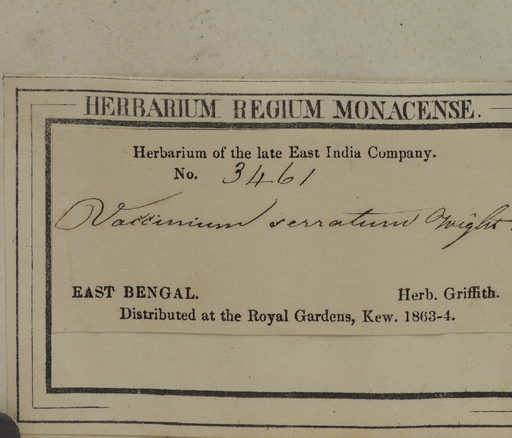 HERBARIUM REGIUM MONACENSE.
Herbarium of the late East India Company.
No. 3461
Vaccinium serratum Wight.
EAST BENGAL. Herb. Griffith.
Distributed at the Royal Gardens, Kew. 1863-4.